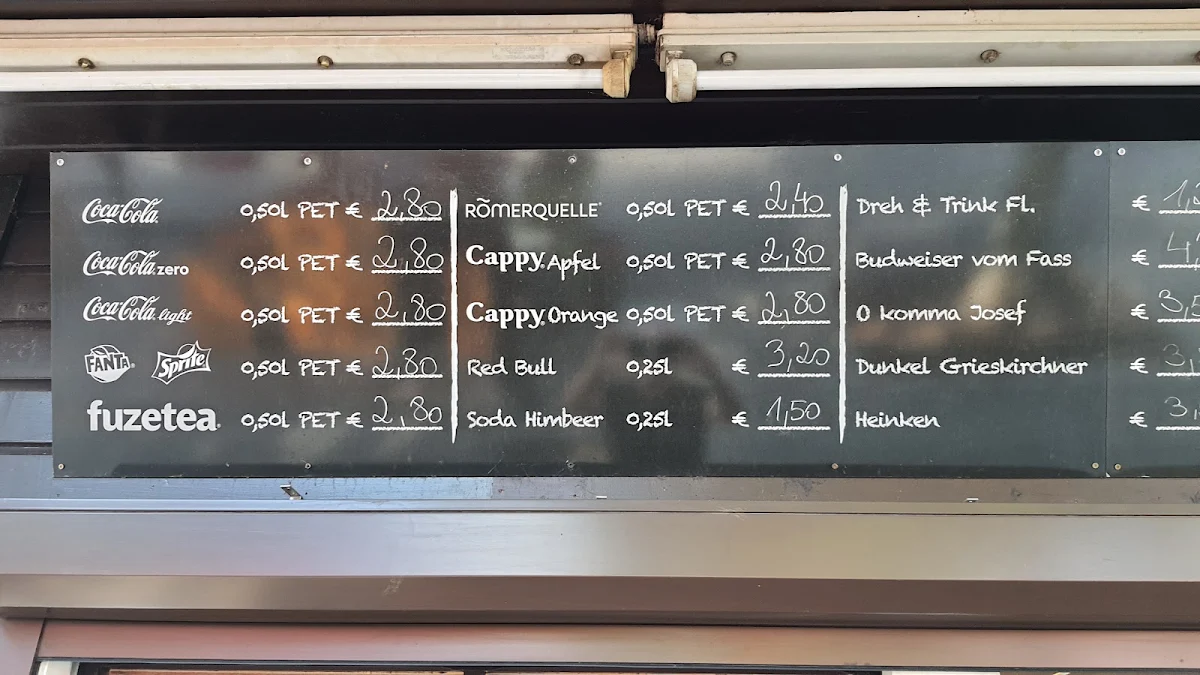 Coca-Cola 0,50l PET € 2,80
Coca-Cola zero 0,50l PET € 2,80
Coca-Cola light 0,50l PET € 2,80
FANTA Sprite 0,50l PET € 2,80
fuzetea 0,50l PET € 2,80
RÖMERQUELLE 0,50l PET € 2,40
Cappy Apfel 0,50l PET € 2,80
Cappy Orange 0,50l PET € 2,80
Red Bull 0,25l € 3,20
Soda Himbeer 0,25l € 1,50
Dreh & Trink Fl. € 1,
Budweiser vom Fass € 4,
O komma Josef € 3,5
Dunkel Grieskirchner € 3,
Heinken € 3,